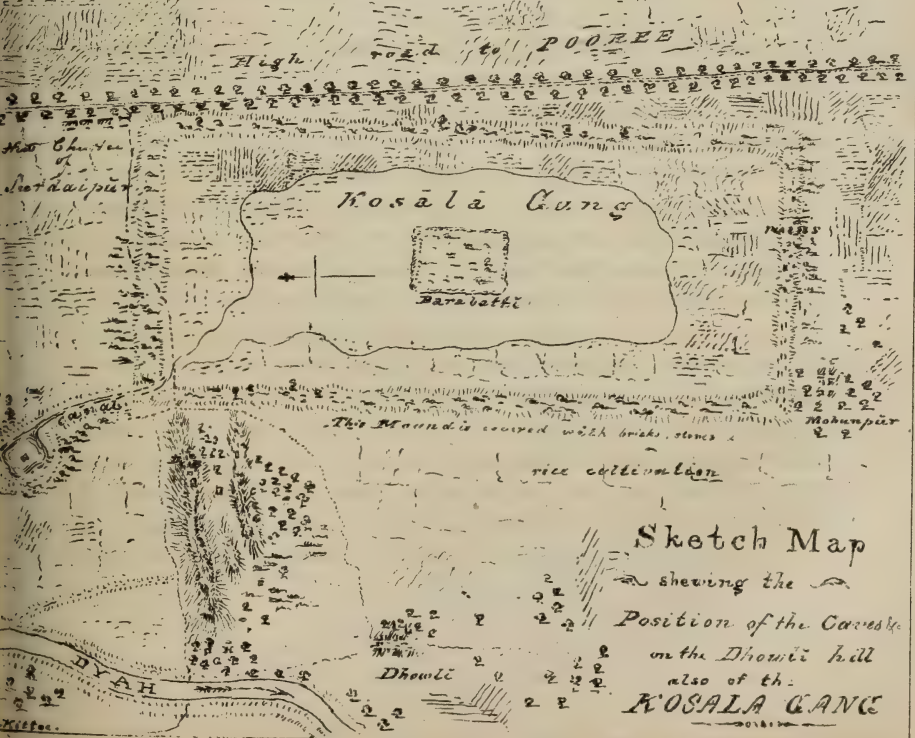 High road to POOREE
of
Surdaipur
Kosālā Gang
Barabatti
canal
This Mound is covered with bricks, stones &
Mohunpūr
rice cultivation
Sketch Map
shewing the
Position of the Caves &c
on the Dhowlī hill
also of the
KOSALA GANG
Dhowlī
DYAH
Kittoe.